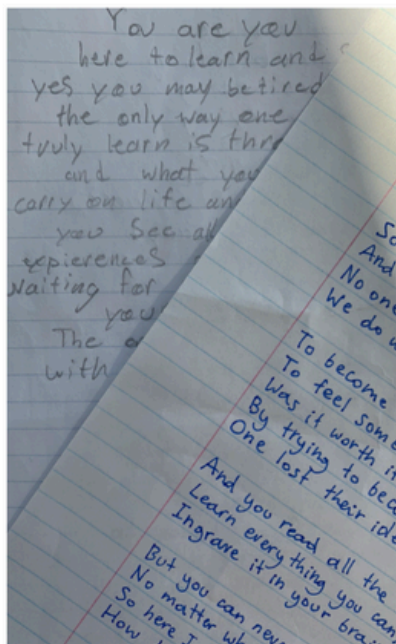 You are you
here to learn and
yes you may be tired
the only way one
truly learn is thro
and what you
carry on life an
you See al
expierences
Waiting for
you
The
with
So
And
No one
We do
To become
To feel some
Was it worth it
By trying to beca
One lost their ide
And you read all the
Learn everything you can
Ingrave it in your brai
But you can nev
No matter wh
So here I
How